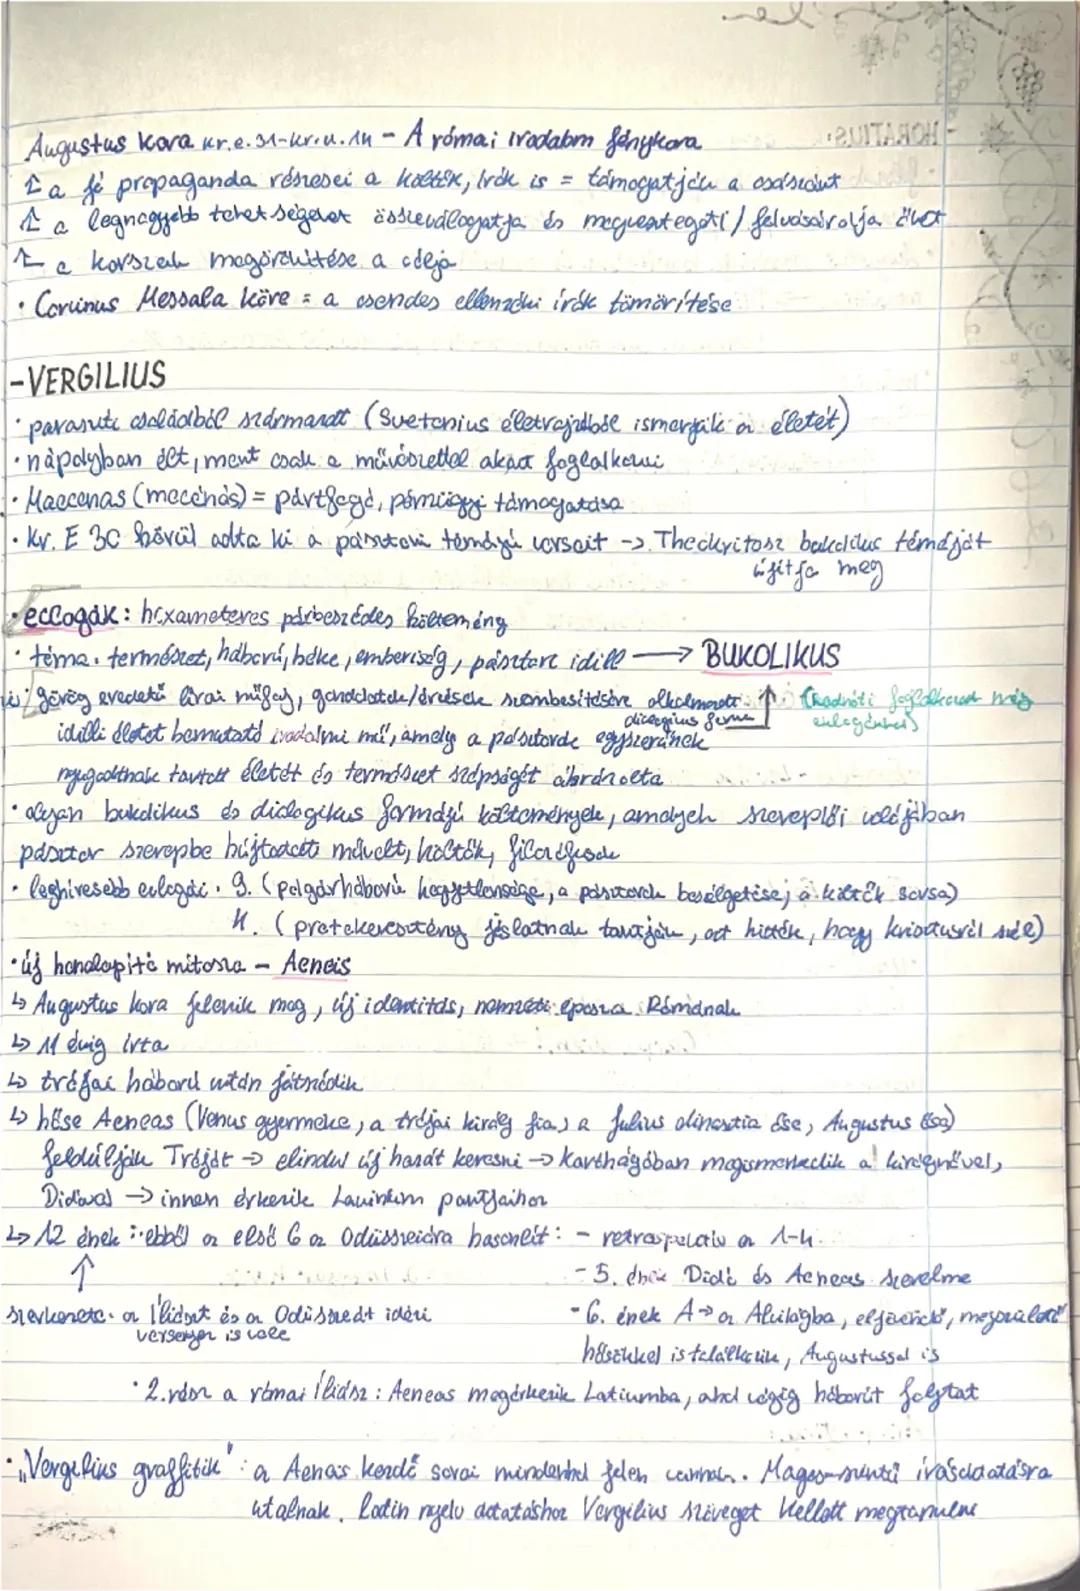 Augustus kora kr.e. 31-kr.u. 14 - A római irodalom fénykora
a fő propaganda részesei a költők, írók is = támogatják a császárt
a legnagyobb tehetségeket összeválogatja és megvesztegeti / felvásárolja őket
a korszak megörökítése a célja
• Corvinus Messala köre = a csendes ellenzéki írók tömörítése
- HORATIUS:
- VERGILIUS
• paraszti családból származott (Suetonius életrajzából ismerjük az életét)
• nápolyban élt, mert csak a művészettel akart foglalkozni
• Maecenas (mecénás) = pártfogó, pénzügyi támogatása
• Kr. E 30 körül adta ki a pásztori témájú verseit -> Theokritosz bukolikus témáját
újítja meg
• eclogák: hexameteres párbeszédes költemény
• téma: természet, háború, béke, emberiség, pásztori idill → BUKOLIKUS
görög eredetű lírai műfaj, gondolatok/érzések szembesítésére alkalmazott
dialógus forma
(Radnóti foglalkozott még
eclogákkal)
idilli életet bemutató irodalmi mű, amely a pásztorok egyszerűnek
nyugodtnak tartott életét és természet szépségét ábrázolta
• olyan bukolikus és dialogikus formájú költemények, amelyek szereplői valójában
pásztor szerepbe bújtatott művelt, költők, filozófusok
• leghíresebb eclogái: 9. (polgárháború kegyetlensége, a pásztorok beszélgetése, a költők sorsa)
4. (protokeresztény jóslatnak tartják, azt hitték, hogy krisztusról szól)
• új honalapító mítosza - Aeneis
↳ Augustus kora jelenik meg, új identitás, nemzeti eposza Rómának
↳ 11 évig írta
↳ trójai háború után játszódik
↳ hőse Aeneas (Venus gyermeke, a trójai király fia, a Julius dinasztia őse, Augustus őse)
feldúlják Tróját → elindul új hazát keresni → Karthágóban megismerkedik a királynővel,
Didóval → innen érkezik Lavinium partjaihoz
↳ 12 ének: ebből az első 6 az Odüsszeiára hasonlít: - retrospektív az 1-4.
- 5. ének Didó és Aeneas szerelme
szerkezete: az Íliászt és az Odüsszeát idézi
versenyez is vele
- 6. ének A → az Alvilágba, eljövendő, megszülető
hősökkel is találkozik, Augustussal is
• 2. rész a római Íliász: Aeneas megérkezik Latiumba, ahol végig háborút folytat
• „Vergilius graffitik": az Aeneis kezdő sorai mindenhol jelen vannak. Magas szintű írásoktatásra
utalnak. Latin nyelv oktatáshoz Vergilius szöveget kellett megtanulni